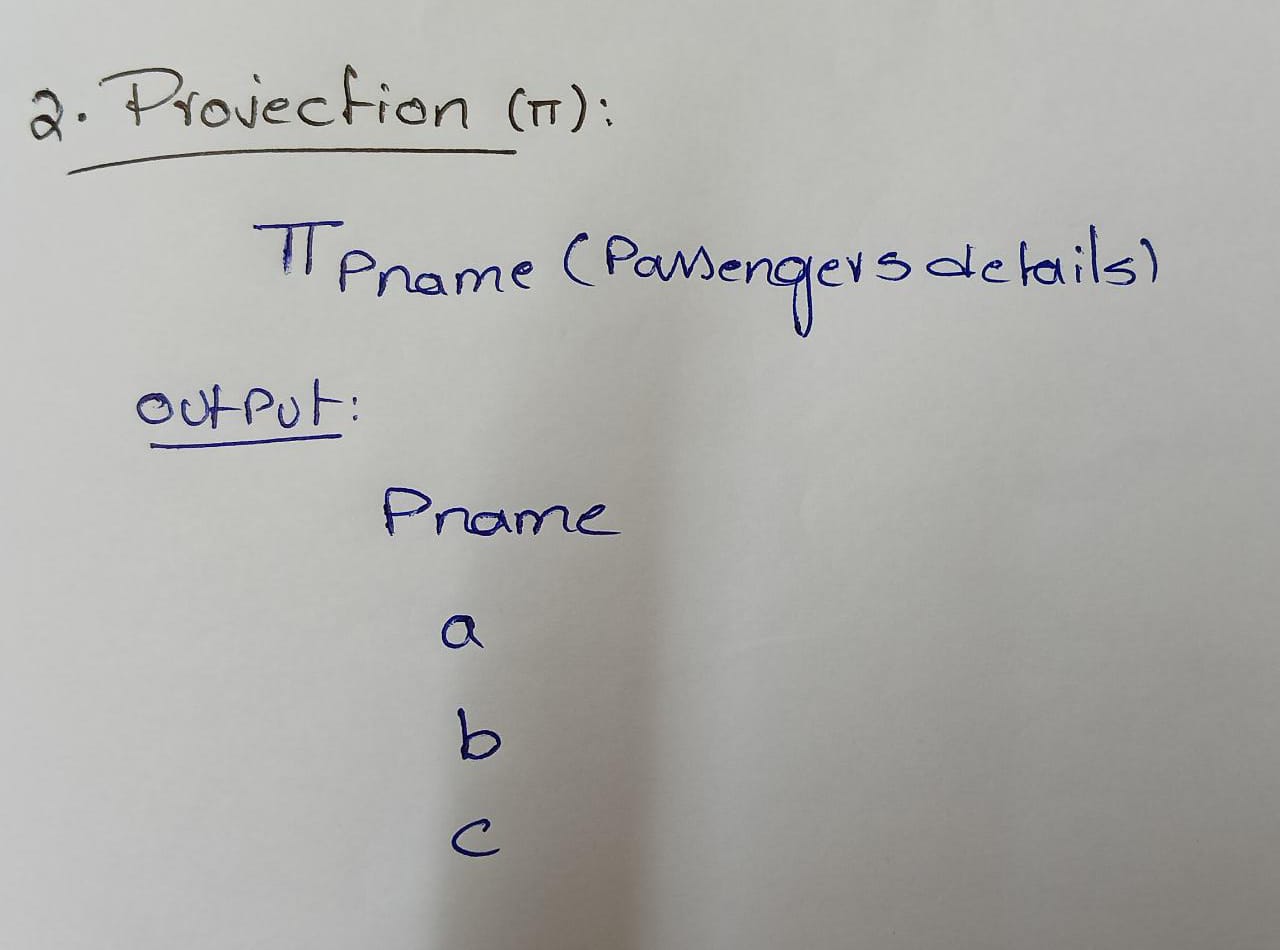 2. Projection (π):
π Pname (Passengers details)
output:
Pname
a
b
c